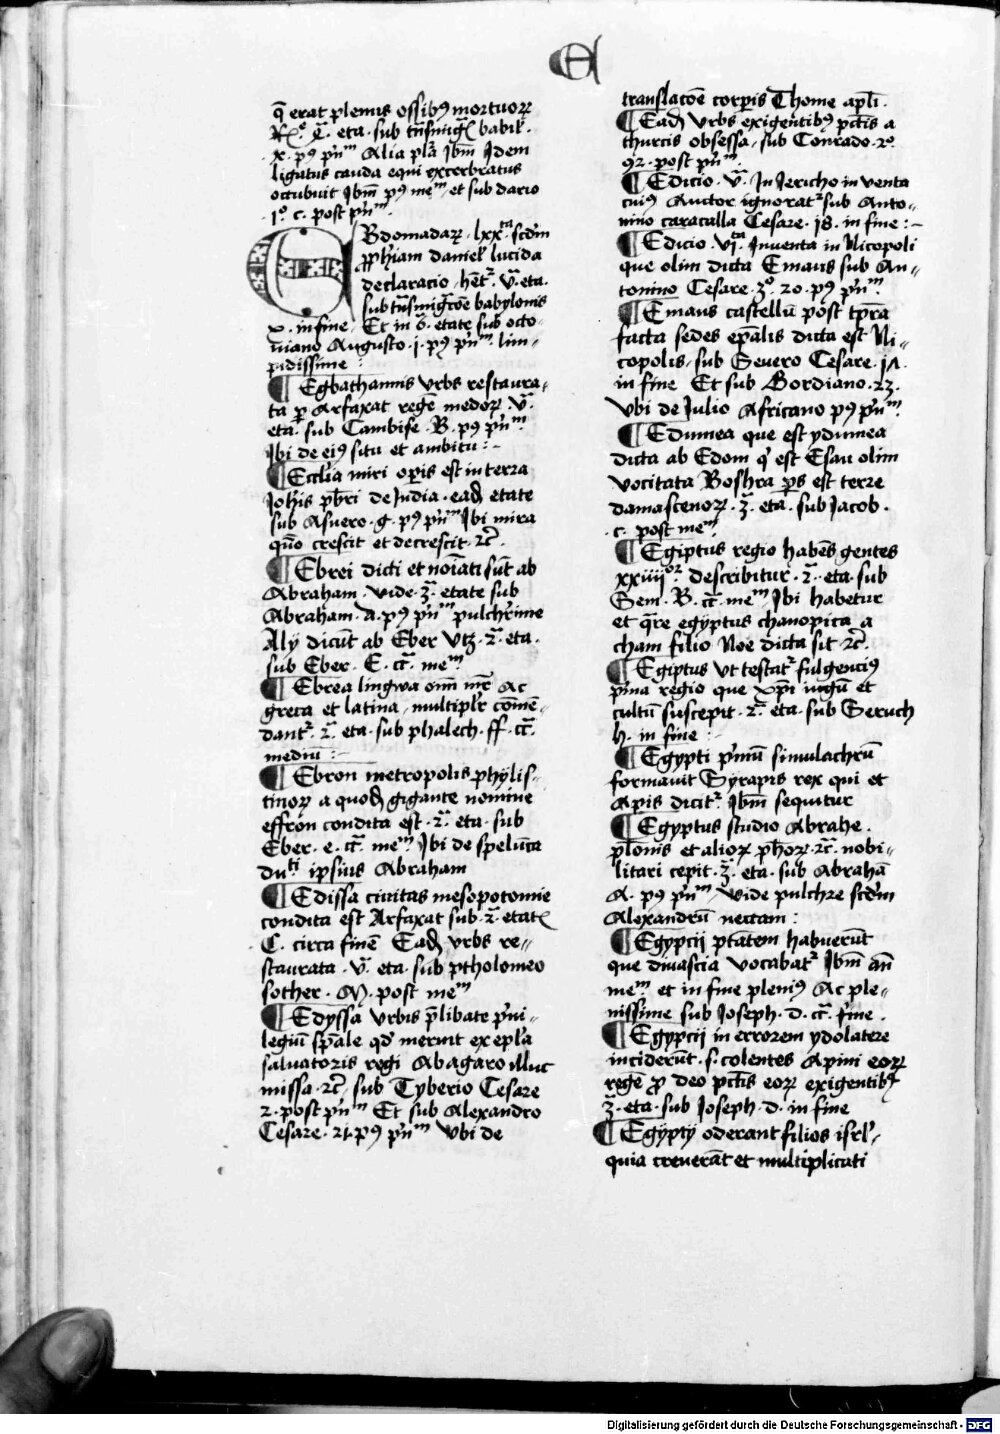 E
q̄ erat plenus ossibꝰ mortuoꝝ
eta · sub babil̄ ·
x · pꝰ pn̄m Alia pla Ibm̄ Idem
ligatus cauda equi excerbratus
occubuit Ibm̄ pꝰ mem̄ et sub dario
· 1º · c · post pn̄m
EBdomadaꝝ · lxxta scdm̄
ꝓphiam daniel̄ lucida
declaracio · hetᷣ · v̄ · eta ·
sub babylonis
x · in fine · Et in 6̄ · etate sub octo-
uiano Augusto · j · pꝰ pn̄m · lim-
pidissime :
¶ Egbathannis vrbs restaura-
ta ꝑ Arfaxat regē medoꝝ · v̄ ·
eta · sub Cambise · B · pꝰ pn̄m
Ibi de eiꝰ situ et ambitu : -
¶ Ecclīa miri oꝑis est in terra
Johīs pbrī de India · eadē etate
sub Asuero · g · pꝰ pn̄m Ibi mira
quō crescit et decrescit · ꝛc̄ ·
¶ Ebrei dicti et noīati sūt ab
Abraham · vide · 3̄ · etate sub
Abraham · a · pꝰ pn̄m pulchrime
Aly dicūt ab Eber vtꝫ · 2̄ · eta ·
sub Eber · E · cc̄ · mem̄
¶ Ebrea lingwa oīm mr̄ Ac
greca et latina · multiplr̄ cōmē-
dantᷣ · 2̄ · eta · sub phalech · ff · cc̄ ·
mediū : -
¶ Ebron metropolis phÿlis-
tinoꝝ a quodā gigante nomine
effron condita est · 2̄ · eta · sub
Eber · e · cc̄ · mem̄ Ibi de spelūca
duti ipsius Abraham
¶ Edissa ciuitas mesopotomie
condita est Arfaxat sub · 2̄ · etatę
C · circa finē Eadē vrbs re-
staurata · v̄ · eta · sub ptholomeo
sother · M · post mem̄
¶ Edyssa vrbis p̄libate pͥui-
legiū spāle qd̄ meruit ex epla
saluatoris regi Abagaro illuc
missa · ꝛc̄ · sub Tyberio Cesare
2 · post pn̄m Et sub Alexandro
Cesare · 21 · pꝰ pn̄m vbi de
translacōe corꝑis Thome apl̄i ·
¶ Eadē vrbs exigentibꝰ pctīs a
thurcis obsessa · sub Conrado · 2º ·
92 · post pn̄m
¶ Edicio · v̄ · In Jericho in venta
cuiꝰ auctor ignoratᷣ sub Anto-
nino caracalla Cesare · 18 · in fine : -
¶ Edicio · vjta Inuenta in Nicopoli
que olim dicta Emaus sub An-
tonino Cesare · 3º · 20 · pꝰ pn̄m
¶ Emaus castellū post tpr̄a
facta sedes ep̄alis dicta est Ni-
copolis · sub Seuero Cesare · 17 ·
in fine Et sub Gordiano · 23 ·
vbi de Julio Africano pꝰ pn̄m
¶ Edumea que est ydumea
dicta ab Edom qͥ est Esau olim
vocitata Boshra ꝑs est terre
damascenoꝝ · 3̄ · eta · sub Jacob ·
· c · post mem̄
¶ Egiptus regio habēs gentes
xxiiijor describitur · 2̄ · eta · sub
Sem · B · cc̄ · mem̄ Ibi habetur
et qᷓre egyptus chanopica a
cham filio Noe dicta sit · ꝛc̄ ·
¶ Egiptus vt testatᷣ fulgenciꝰ
pͥma regio que xpī iugū et
cultū suscepit · 2̄ · eta · sub Seruch
h · in fine :
¶ Egypti pͥmū simulachrū
formauit Syrapis rex qui et
Apis dicitᷣ Ibm̄ sequitur
¶ Egyptus studio Abrahe ·
platonis et alioꝝ phoꝝ · ꝛc̄ · nobi-
litari cepit · 3̄ · eta · sub Abrahā
A · pꝰ pn̄m · vide pulchre scdm̄
Alexandrū nectam :
¶ Egypcij ptātem habuerūt
que dinascia vocabatᷣ Ibm̄ an̄
mem̄ et in fine pleniꝰ Ac ple-
nissime sub Joseph · d · cc̄ fine ·
¶ Egypcij in errorem ydolatere
inciderūt · s · colentes Apim eoꝝ
regē ꝓ deo pctīs eoꝝ exigentibꝰ
3̄ · eta · sub Joseph · d · in fine
¶ Egypty oderant filios isrl̄ ·
quia creuerāt et multiplicati
Digitalisierung gefördert durch die Deutsche Forschungsgemeinschaft - DFG